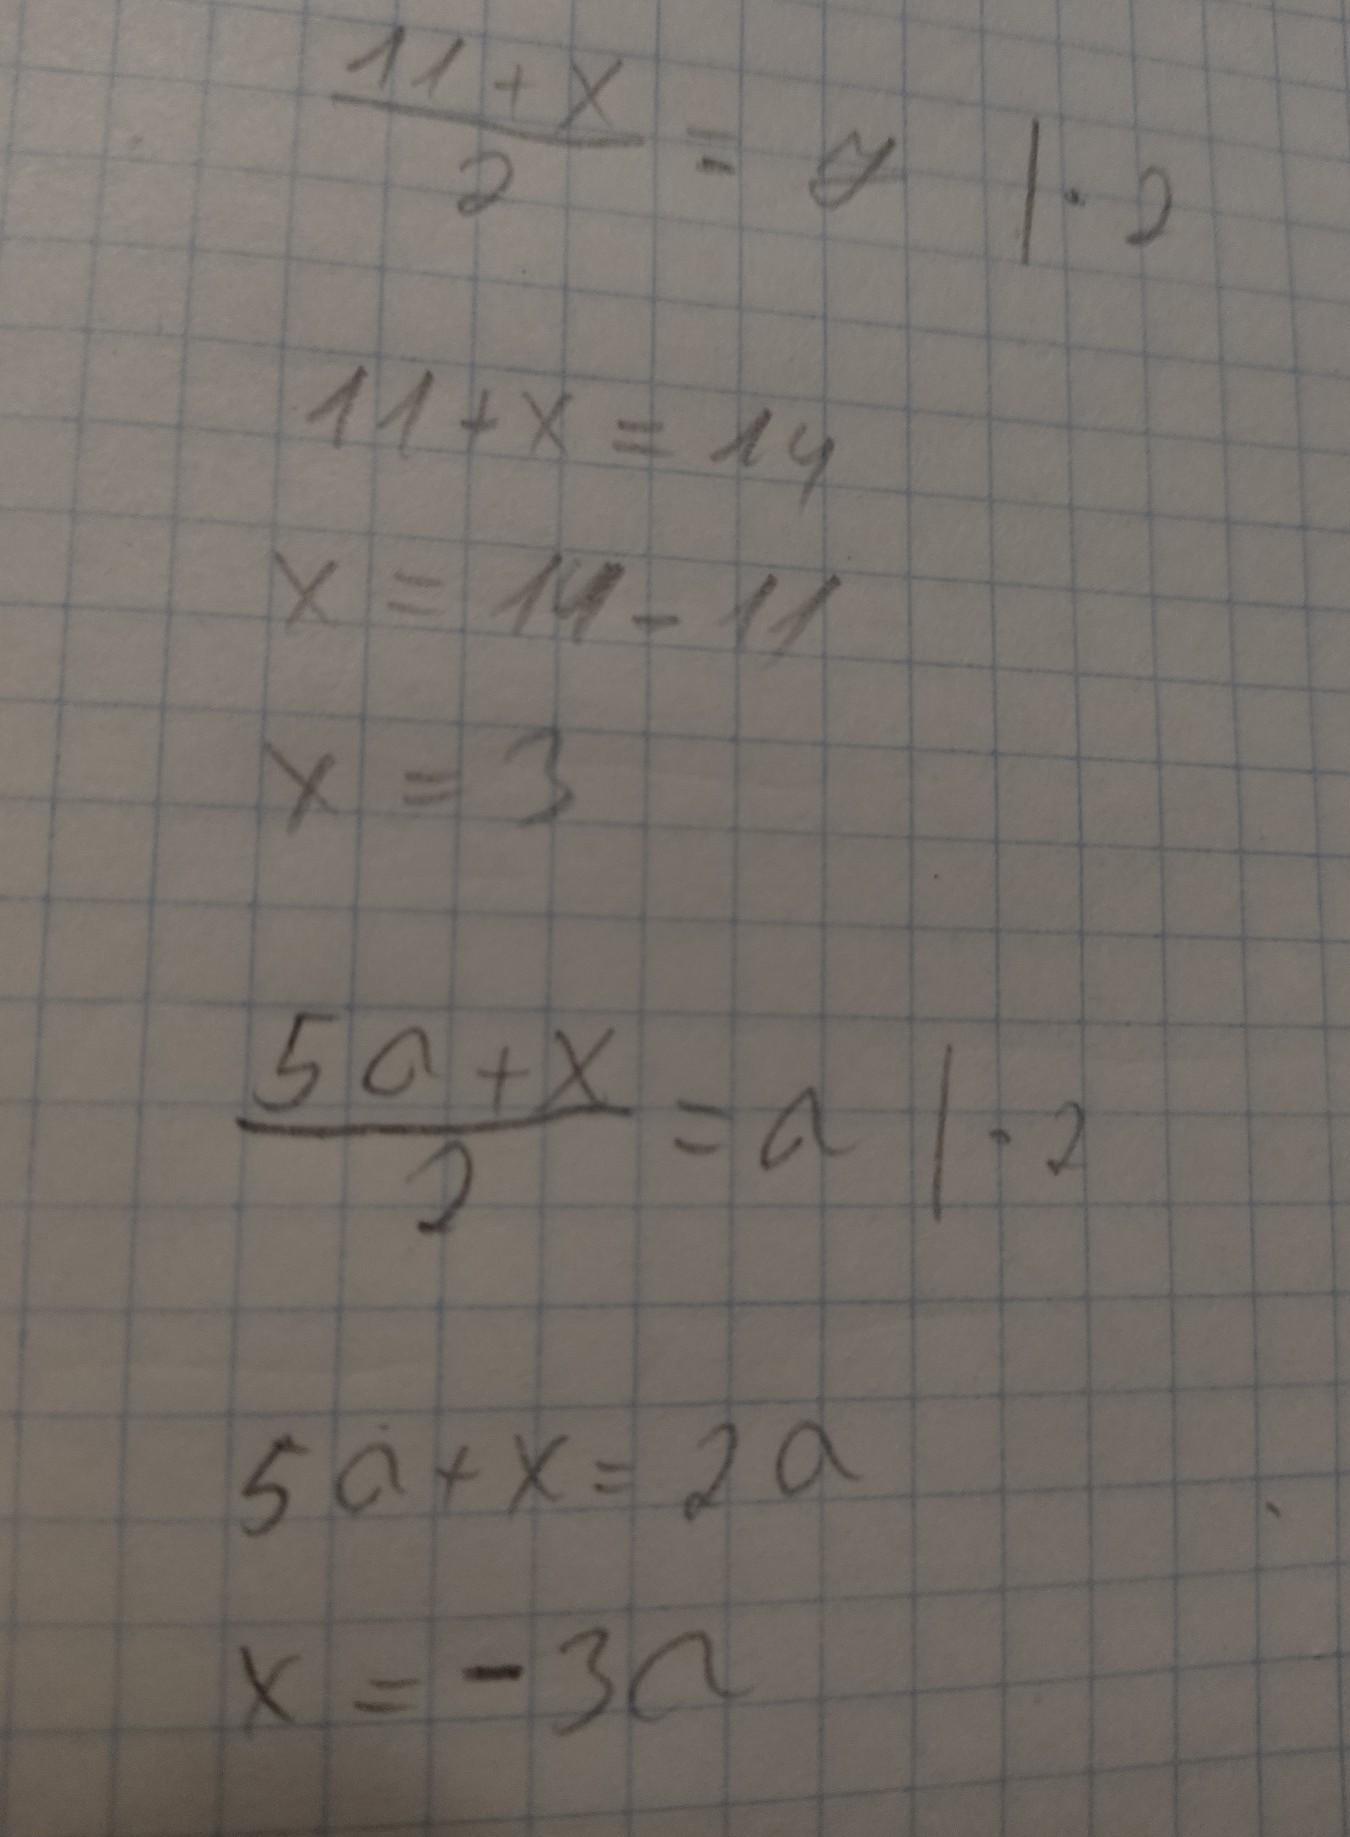 11 + x
2 = 7 | · 2
11 + x = 14
x = 14 - 11
x = 3
5a + x
2 = a | · 2
5a + x = 2a
x = - 3a